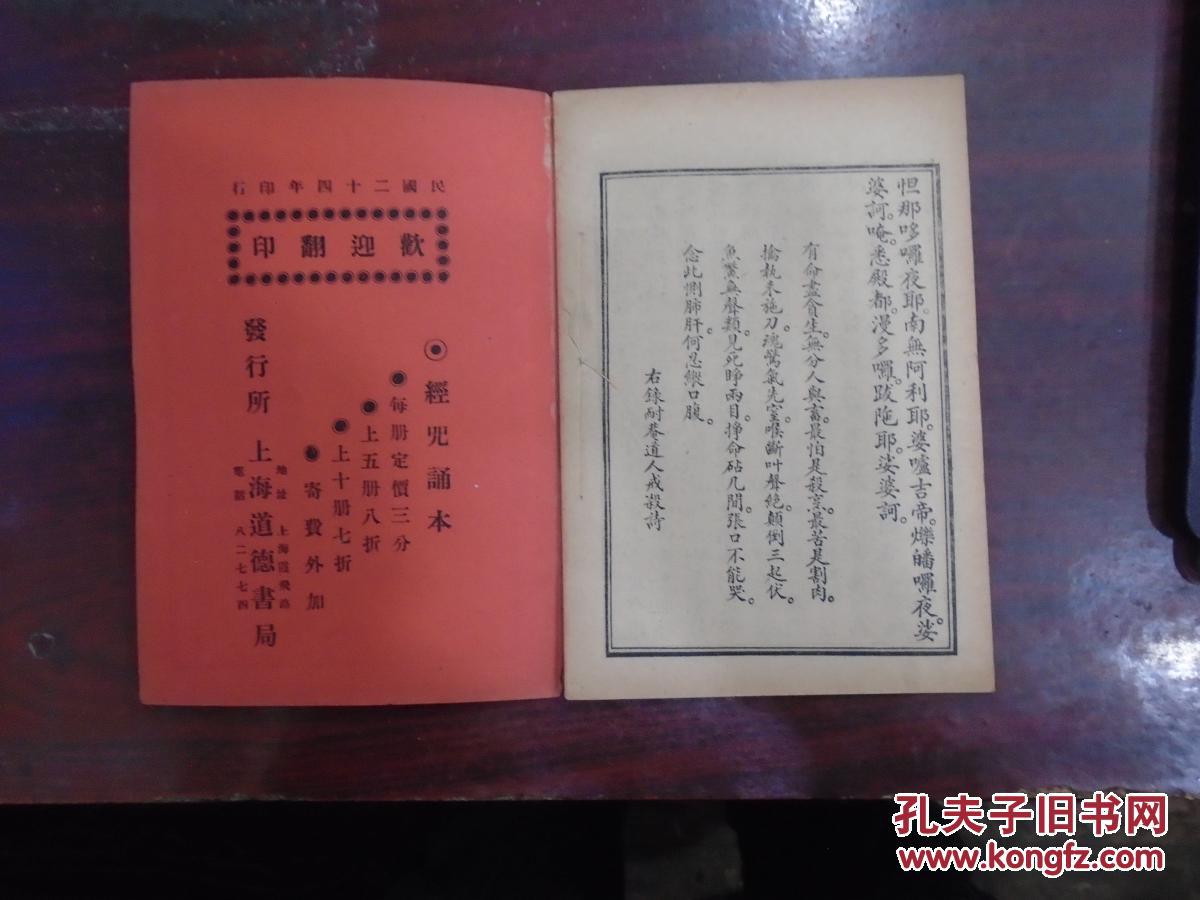 怛那哆囉夜耶。南無阿利耶。婆嚧吉帝。爍皤囉夜。娑
婆訶。唵。悉殿都。漫多囉。跋陁耶。娑婆訶。
有命盡貪生。無分人與畜。最怕是殺烹。最苦是割肉。
擒執未施刀。魂驚氣先窒。喉斷叫聲絕。顛倒三起伏。
魚鱉無聲類。見死睜兩目。掙命砧几間。張口不能哭。
念此惻肺肝。何忍縱口腹。
右錄耐菴道人戒殺詩
民國二十四年印行
歡迎翻印
◉經咒誦本
●每册定價三分
●上五册八折
●上十册七折
●寄費外加
發行所 上海道德書局
地址 上海霞飛路
電話 八二七七四
孔夫子旧书网
www.kongfz.com